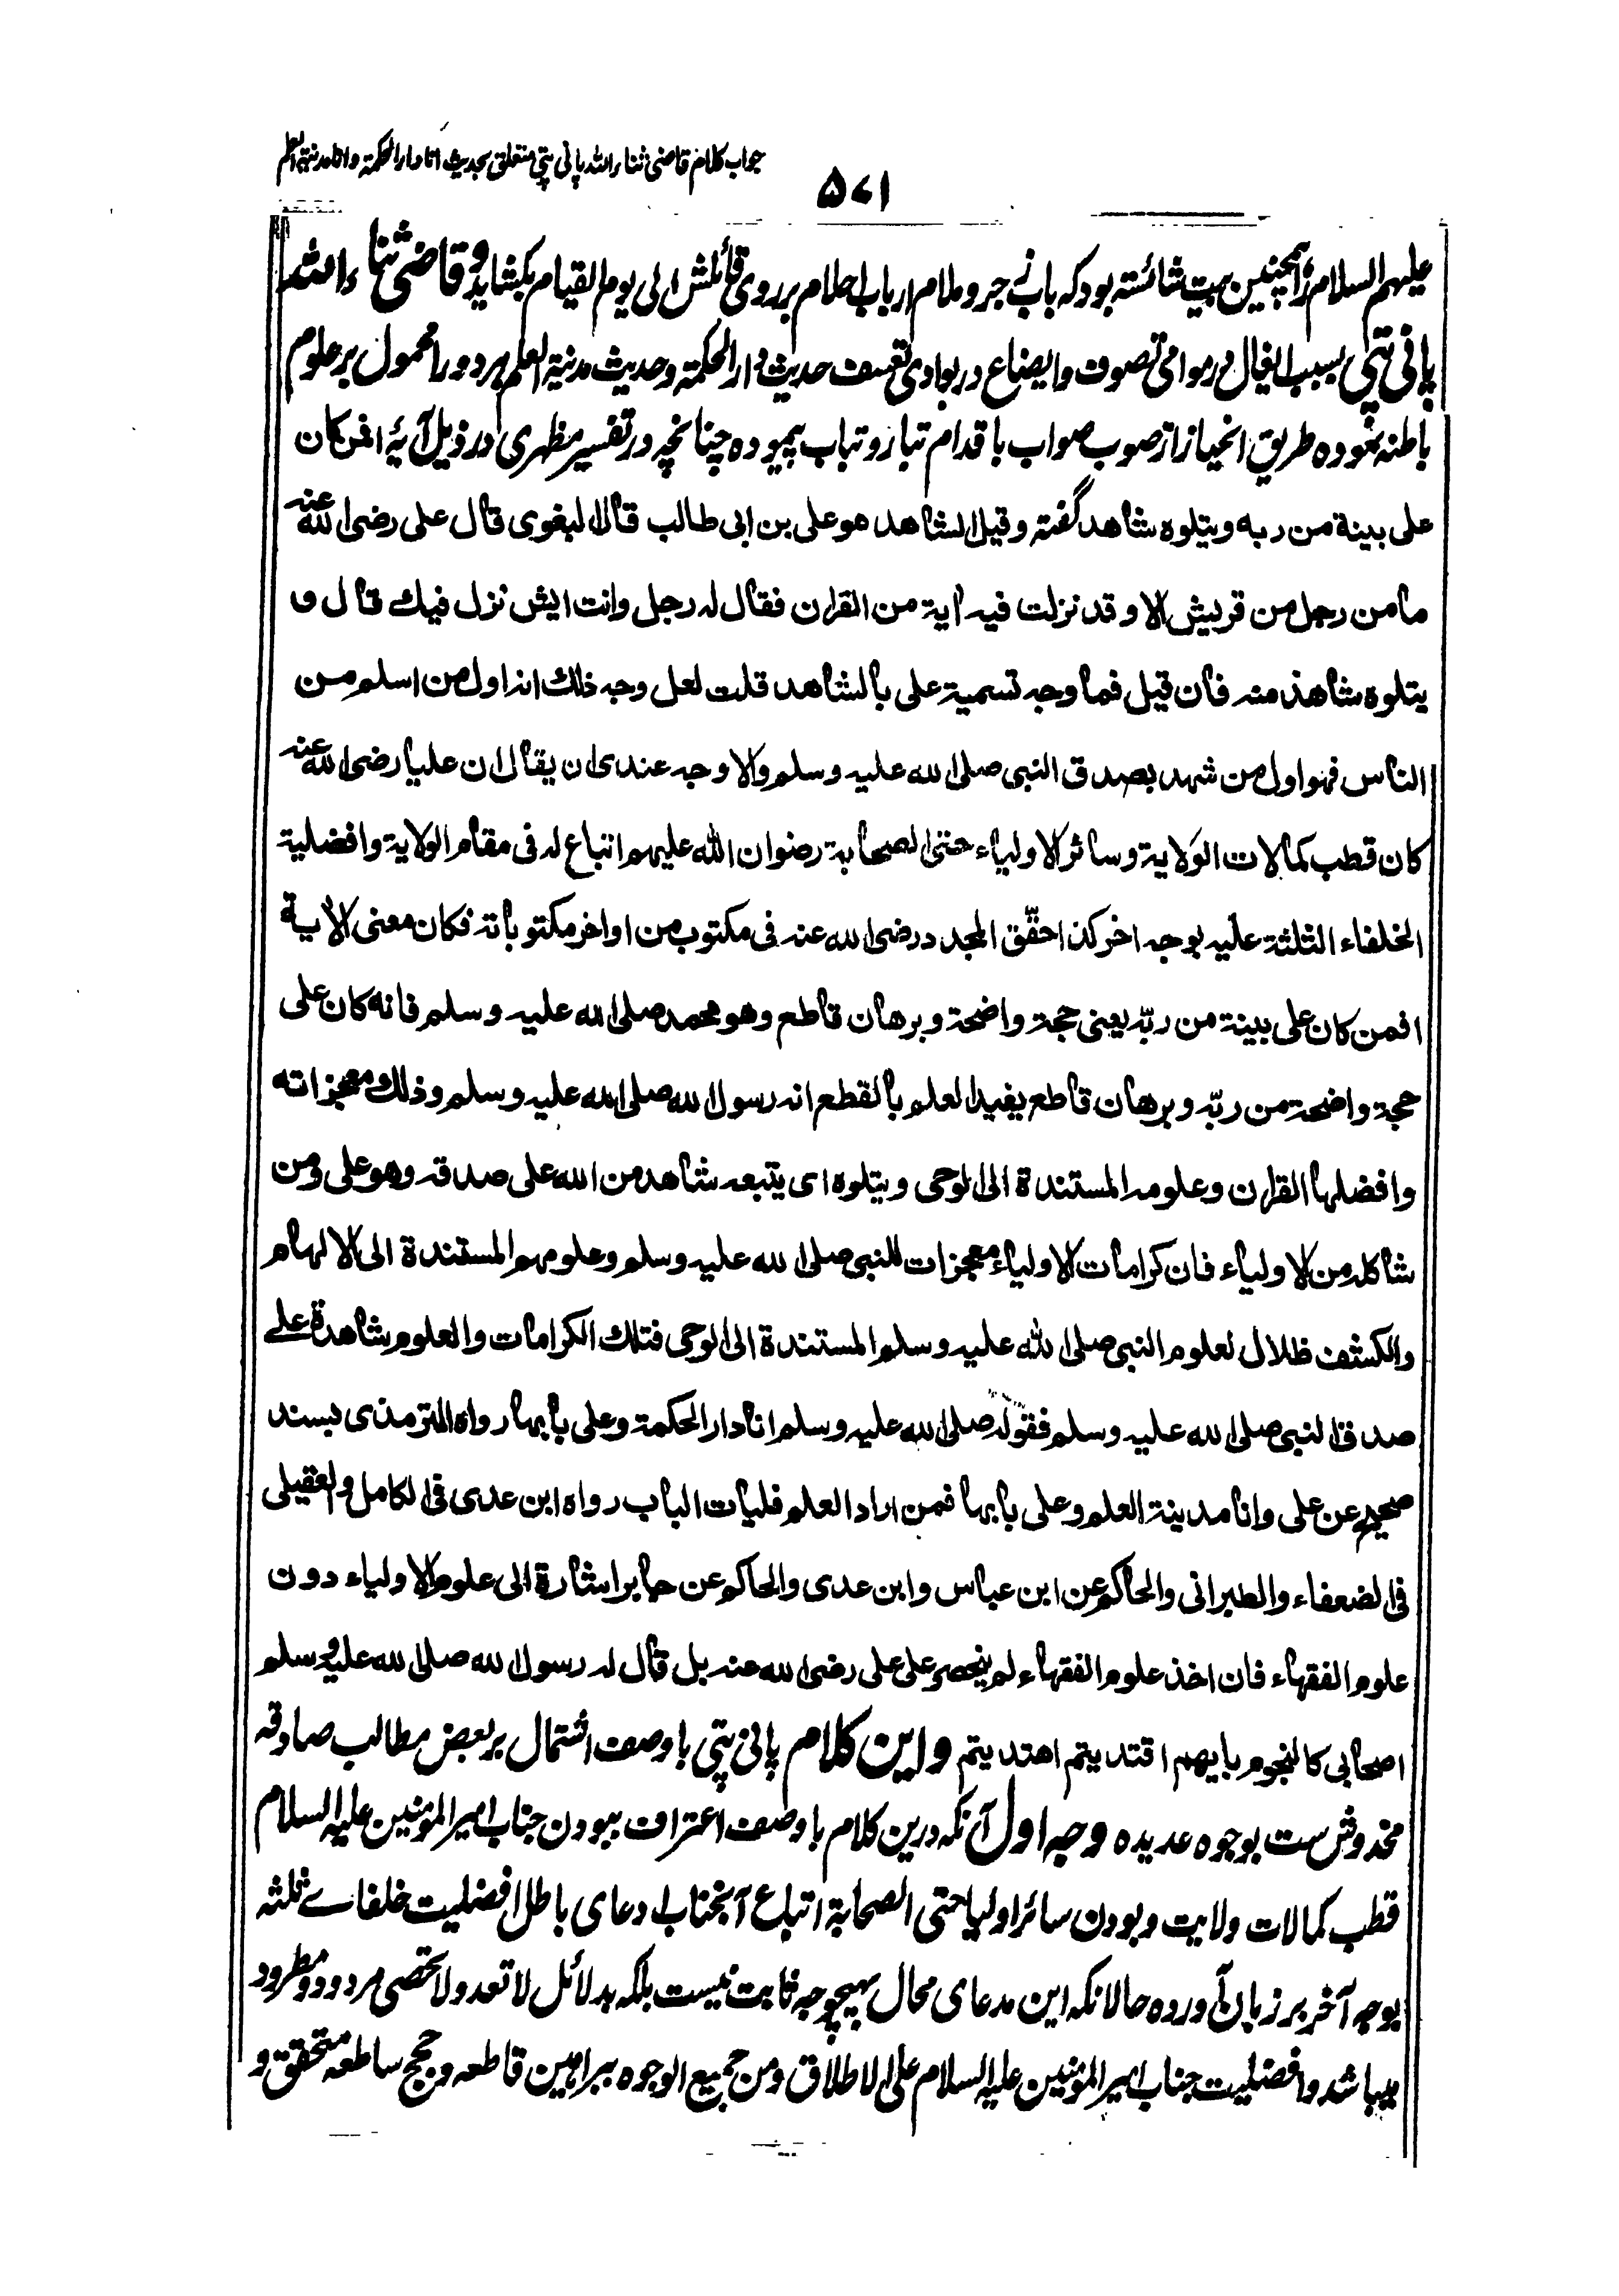 جواب کلام قاضی ثناء الله پانی پتی متعلق بحدیث انا دار الحکمة و انا مدینة العلم
۵۷۱
علیهم السلام را همچنین بیت شائسته بود که بابے جر و ملام ارباب احلام بر روی قائلش الی یوم القیام بکشاید و قاضی ثناء الله
پانی پتی بسبب ایغال در موامی تصوف و ایضاع در بوادی تعسف حدیث دار الحکمة و حدیث مدینة العلم هر دو را محمول بر علوم
باطنه نموده طریق انحیاز از صوب صواب باقدام تبار و تباب پیموده چنانچه در تفسیر مظهری در ذیل آیۀ افمن کان
علی بینة من ربه و یتلوه شاهد گفته و قیل الشاهد هو علی بن ابی طالب قال البغوی قال علی رضی الله عنه
ما من رجل من قریش الا و قد نزلت فیه آیة من القران فقال له رجل و انت ایش نزل فیك قال و
یتلوه شاهد منه فان قیل فما وجه تسمیة علی بالشاهد قلت لعل وجه ذلك انه اول من اسلم من
الناس فهو اول من شهد بصدق النبی صلی الله علیه و سلم و الاوجه عندی ان یقال ان علیا رضی الله عنه
کان قطب کمالات الولایة و سائر الاولیاء حتی الصحابة رضوان الله علیهم اتباع له فی مقام الولایة و افضلیة
الخلفاء الثلثة علیه بوجه اخر کذا حقّق المجدد رضی الله عنه فی مکتوب من اواخر مکتوباته فکان معنی الایة
افمن کان علی بینة من ربّه یعنی حجة واضحة و برهان قاطع و هو محمد صلی الله علیه و سلم فانه کان علی
حجة واضحة من ربّه و برهان قاطع یفید العلم بالقطع انه رسول الله صلی الله علیه و سلم و ذلك معجزاته
و افضلها القران و علومه المستندة الی الوحی و یتلوه ای یتبعه شاهد من الله علی صدقه و هو علی و من
شاکله من الاولیاء فان کرامات الاولیاء معجزات للنبی صلی الله علیه و سلم و علومهم المستندة الی الالهام
و الکشف ظلال لعلوم النبی صلی الله علیه و سلم المستندة الی الوحی فتلك الکرامات و العلوم شاهدة علے
صدق النبی صلی الله علیه و سلم فقوله صلی الله علیه و سلم انا دار الحکمة و علی بابها رواه الترمذی بسند
صحیح عن علی و انا مدینة العلم و علی بابها فمن اراد العلم فلیات الباب رواه ابن عدی فی الکامل و العقیلی
فی الضعفاء و الطبرانی و الحاکم عن ابن عباس و ابن عدی و الحاکم عن جابر اشارة الی علوم الاولیاء دون
علوم الفقهاء فان اخذ علوم الفقهاء لم ینحصر علی علی رضی الله عنه بل قال له رسول الله صلی الله علیه و سلم
اصحابی کالنجوم بایهم اقتدیتم اهتدیتم و این کلام پانی پتی با وصف اشتمال بر بعض مطالب صادقه
مخدوش ست بوجوه عدیده وجه اول آنکه درین کلام با وصف اعتراف ببودن جناب امیر المؤمنین علیه السلام
قطب کمالات ولایت و بودن سائر اولیا حتی الصحابة اتباع آنجناب ادعای باطل افضلیت خلفاے ثلثه
بوجه آخر بر زبان آورده حالانکه این مدعای محال بهیچوجه ثابت نیست بلکه بدلائل لا تعد و لا تحصی مردود و مطرود
میباشد و افضلیت جناب امیر المؤمنین علیه السلام علی الاطلاق و من جمیع الوجوه ببراهین قاطعه و حجج ساطعه متحقق و